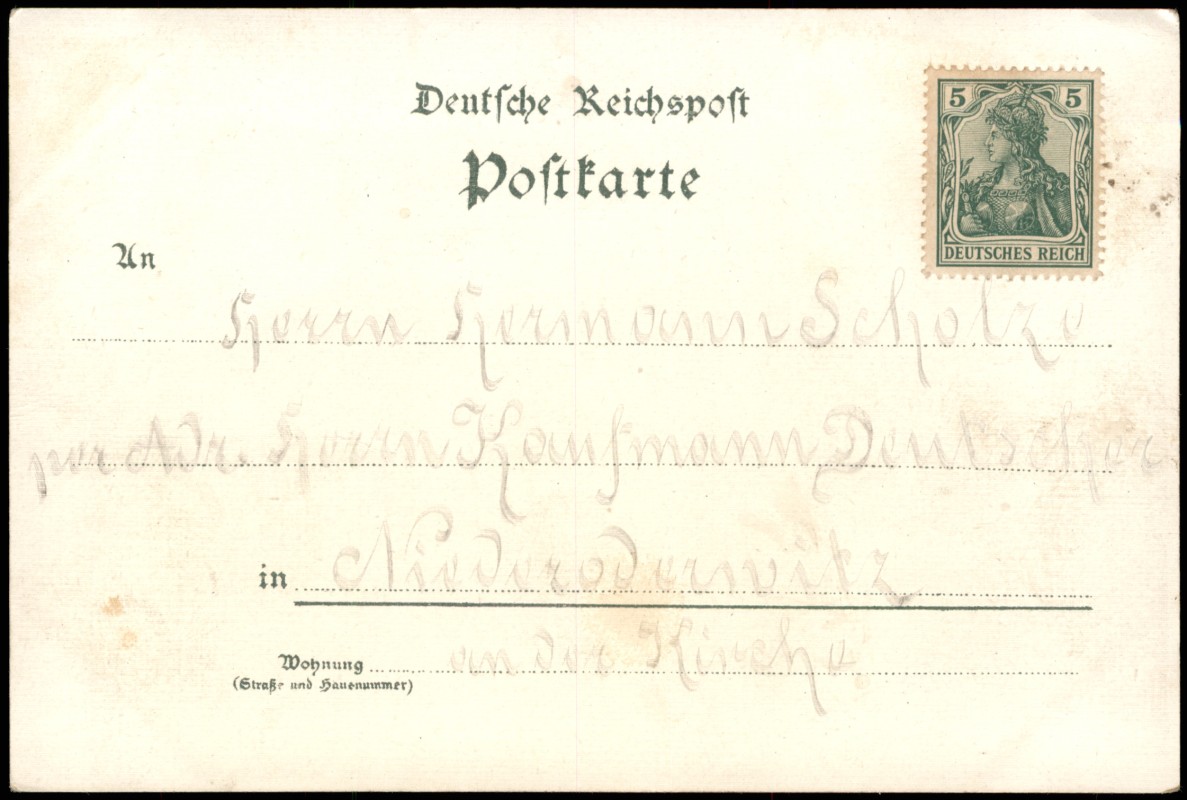 Deutsche Reichspost
Postkarte
5 5
DEUTSCHES REICH
An
Herrn Hermann Scholze
per Adr. Herrn Kaufmann Deutscher
in Niederoderwitz
Wohnung an der Kirche
(Straße und Hausnummer)